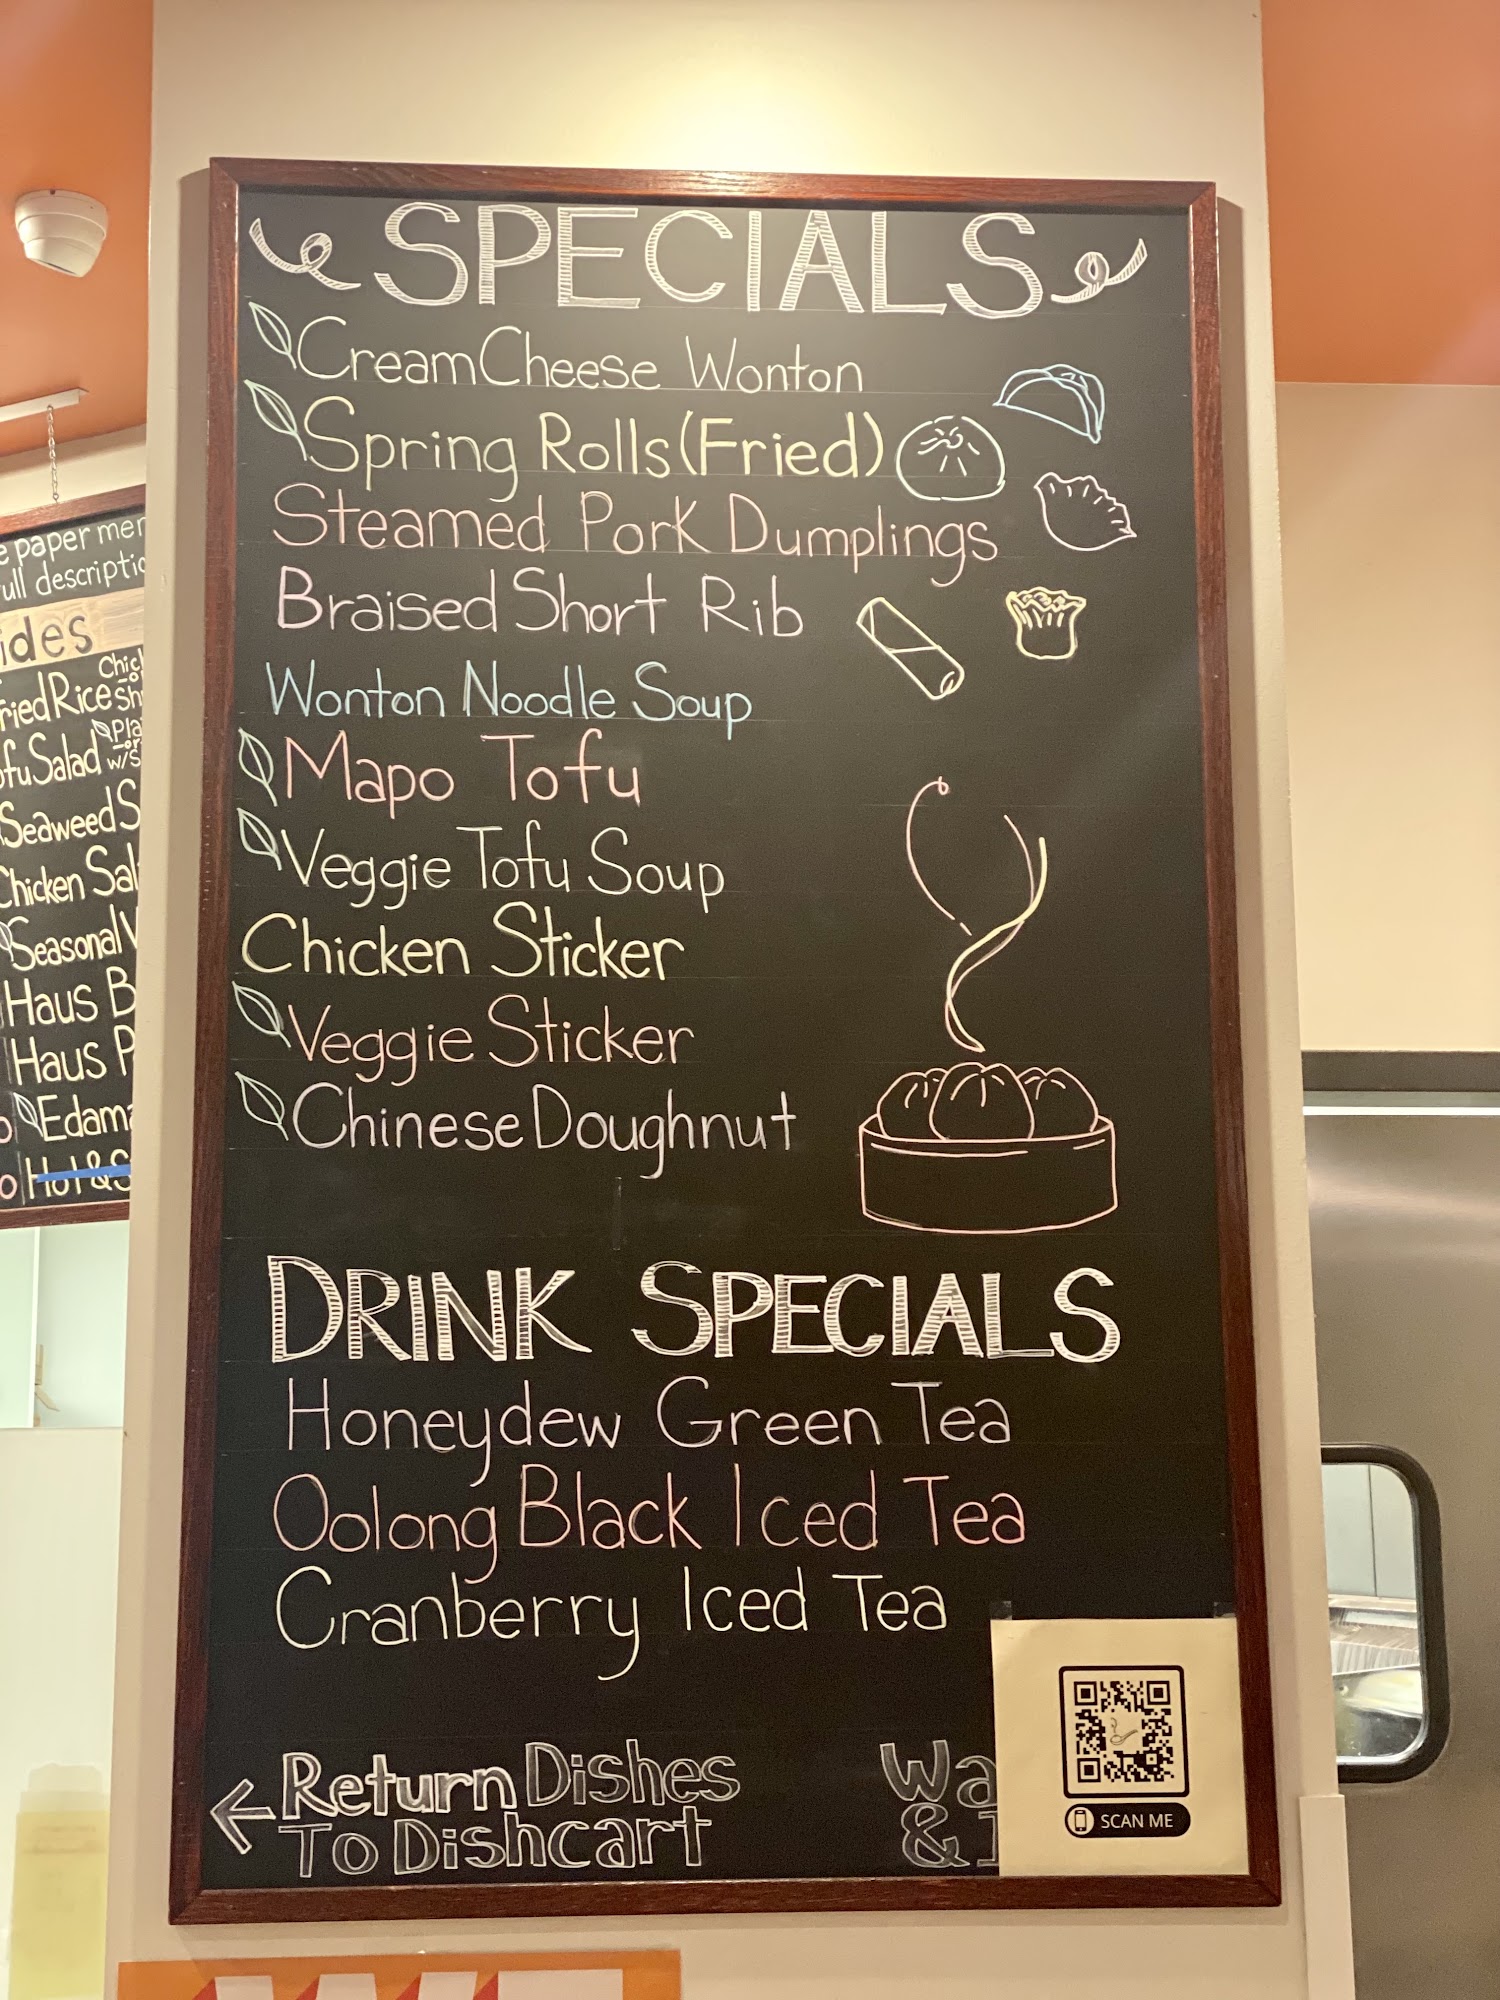 SPECIALS
Cream Cheese Wonton
Spring Rolls (Fried)
Steamed Pork Dumplings
Braised Short Rib
Wonton Noodle Soup
Mapo Tofu
Veggie Tofu Soup
Chicken Sticker
Veggie Sticker
Chinese Doughnut
DRINK SPECIALS
Honeydew Green Tea
Oolong Black Iced Tea
Cranberry Iced Tea
← Return Dishes
To Dishcart
Wa
&
SCAN ME
e paper men
ull descriptio
ides
Chic
ried Rice -or-
Sh
Pla
ofu Salad -or-
w/s
Seaweed S
Chicken Sal
Seasonal V
Haus B
Haus P
Edama
Hot & S